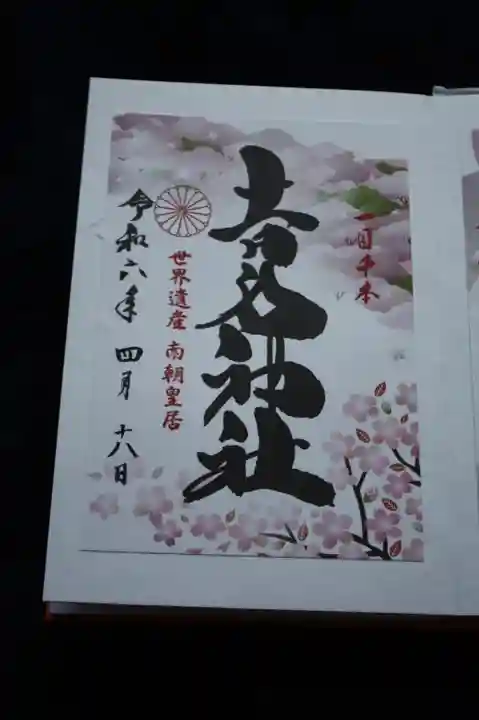 一目千本
吉水神社
世界遺産 南朝皇居
令和六年 四月 十八日